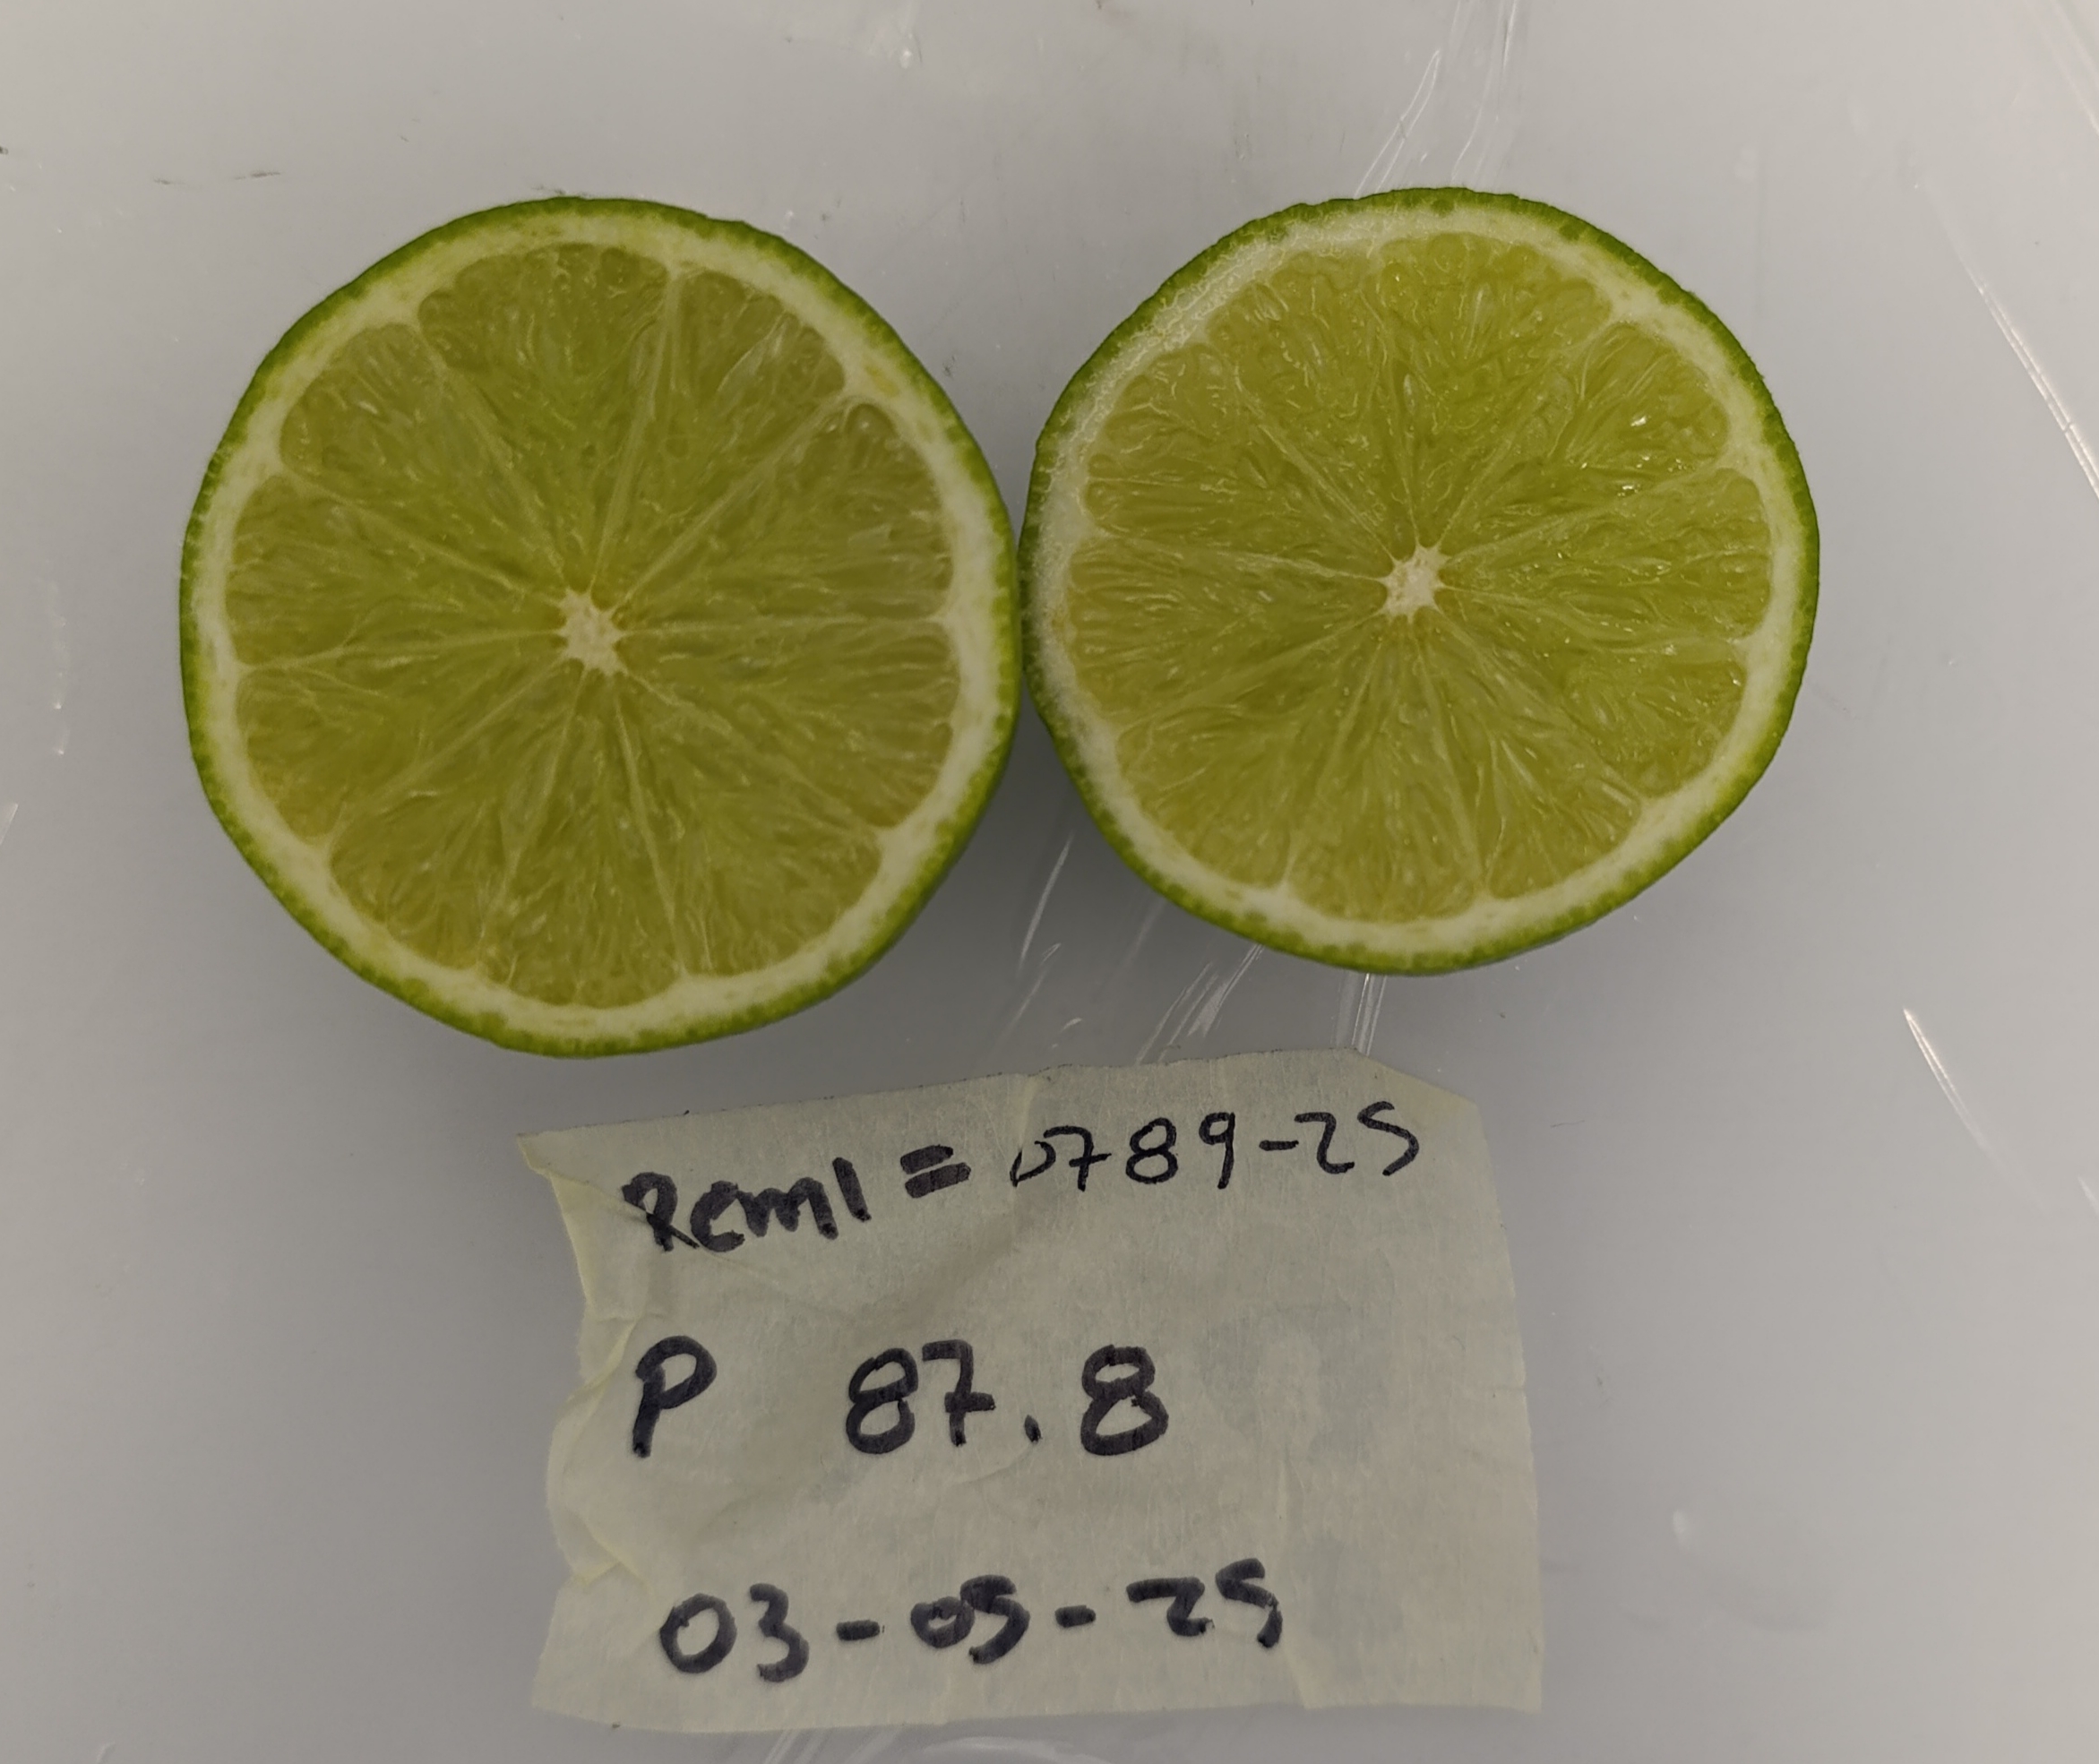 Reml = 0789-25
P 87.8
03-05-25